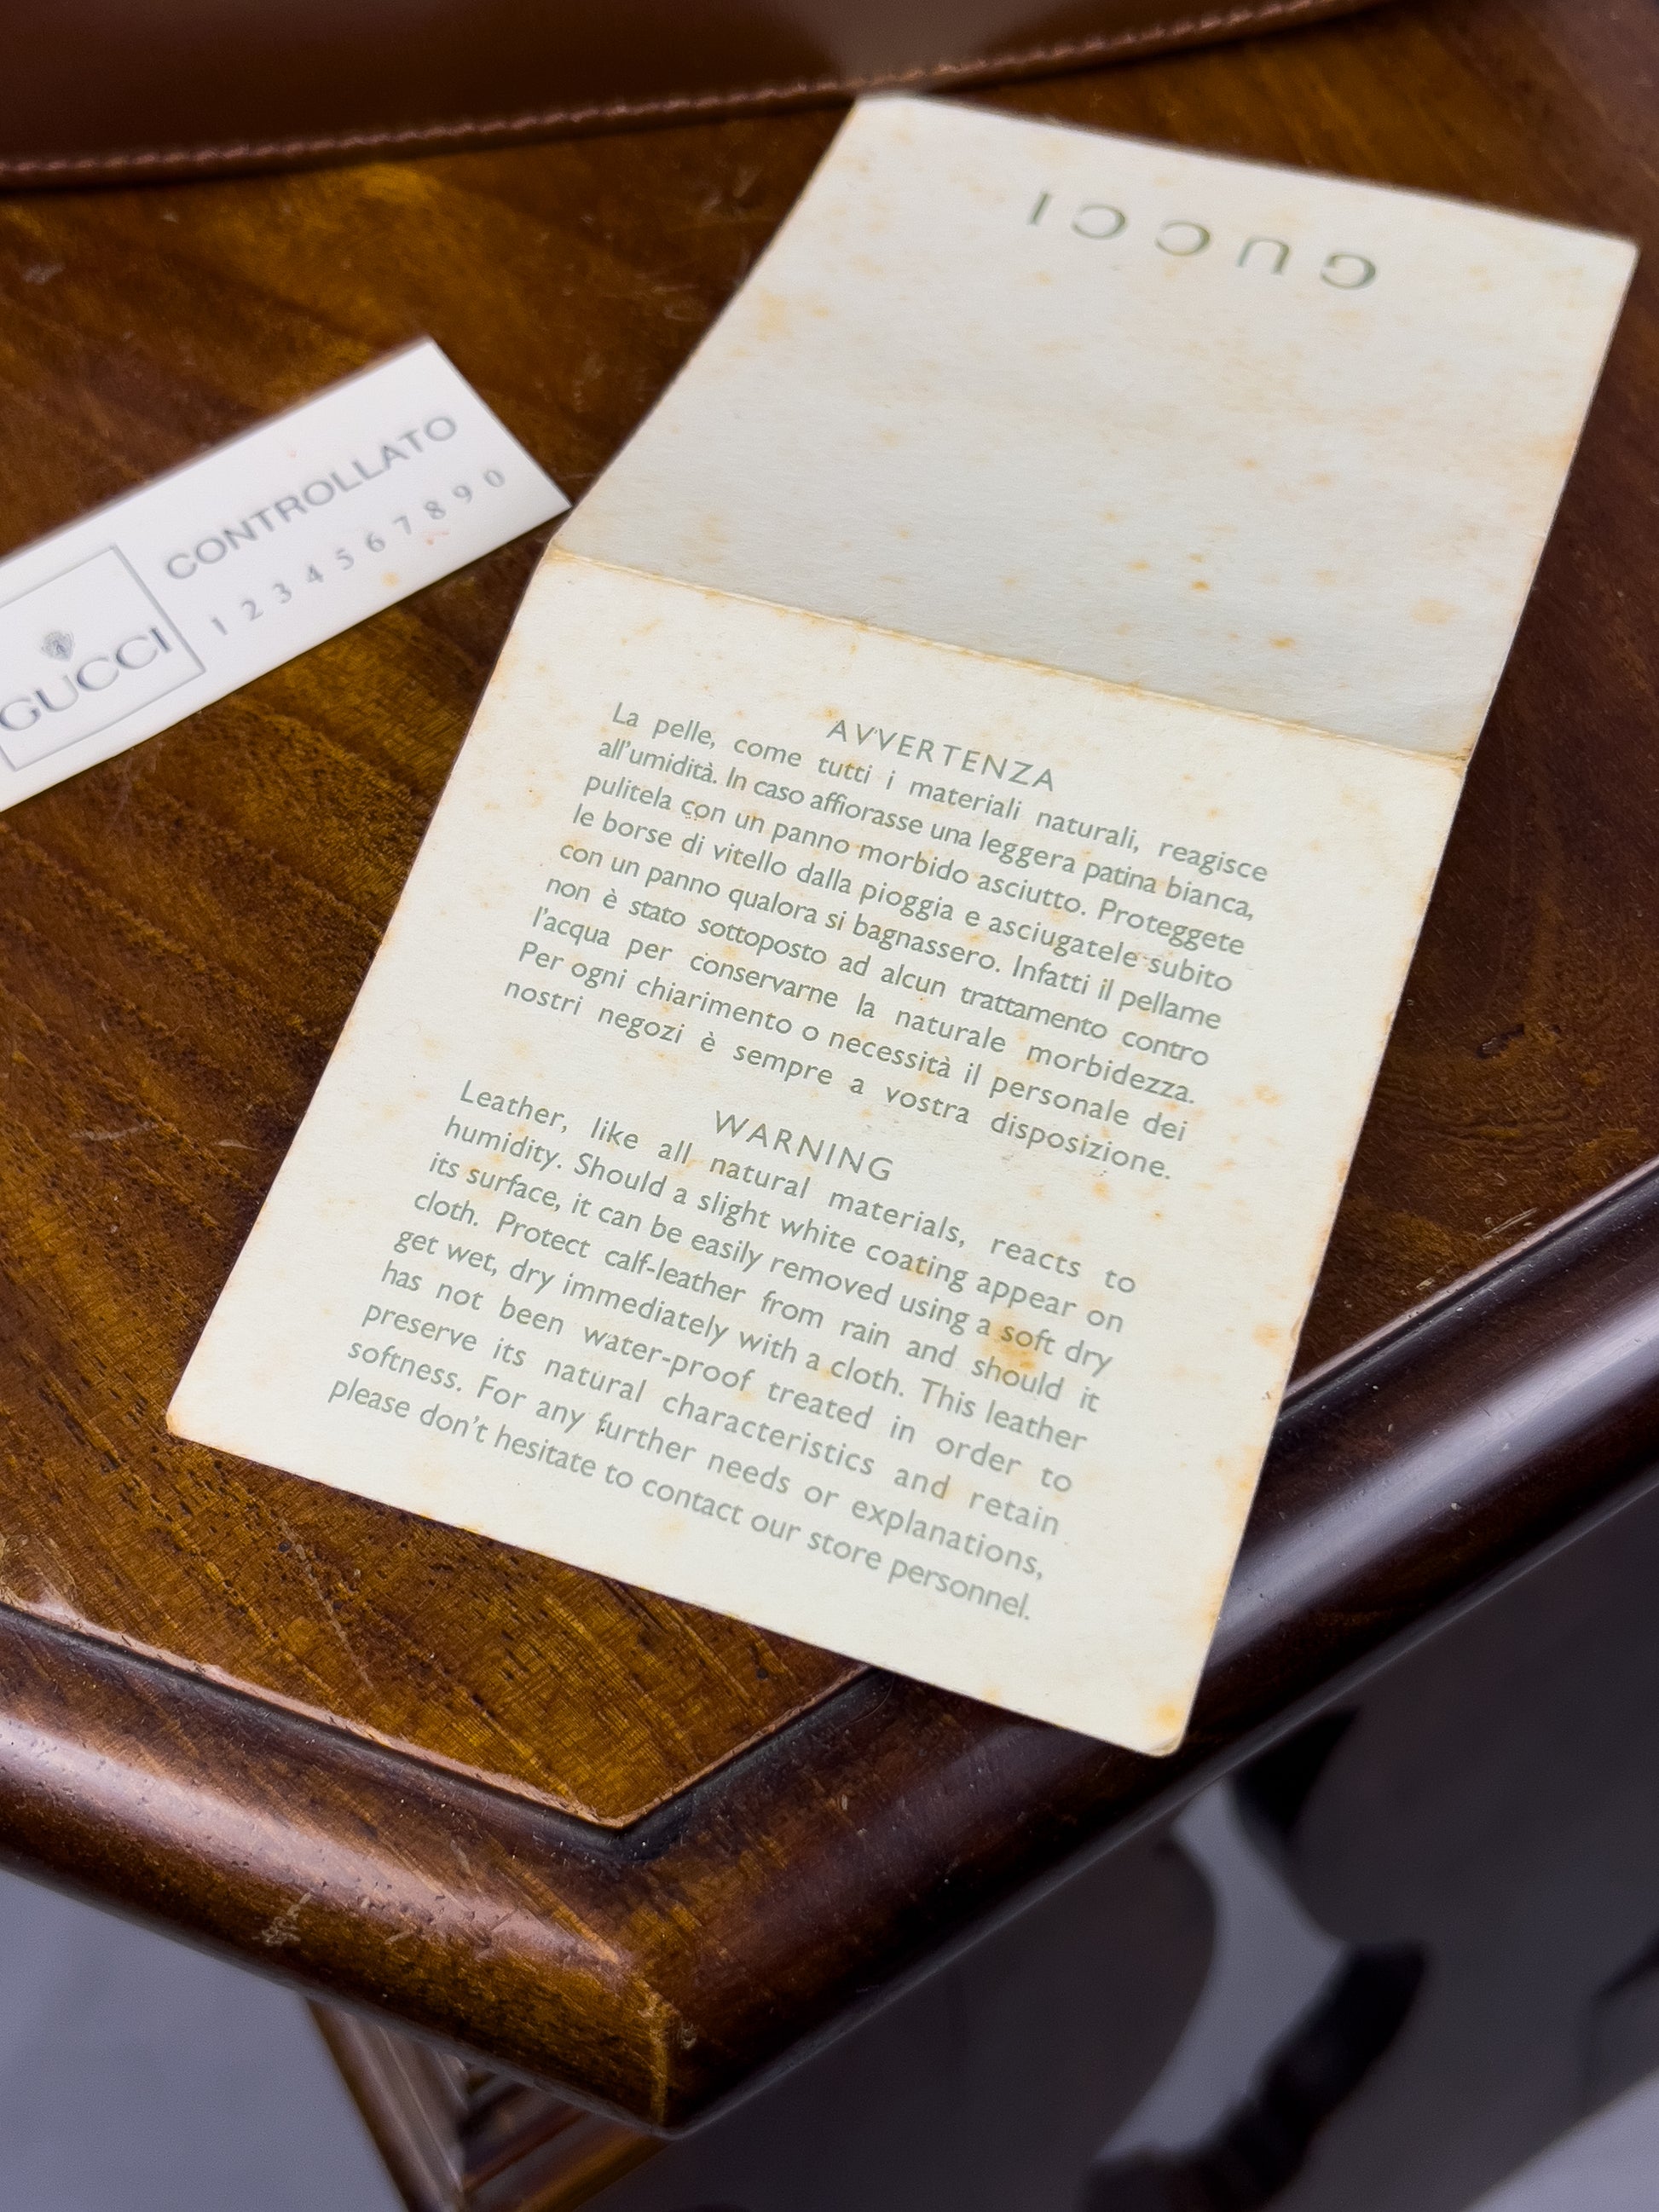 GUCCI
CONTROLLATO
1 2 3 4 5 6 7 8 9 0
GUCCI
AVVERTENZA
La pelle, come tutti i materiali naturali, reagisce
all'umidità. In caso affiorasse una leggera patina bianca,
pulitela con un panno morbido asciutto. Proteggete
le borse di vitello dalla pioggia e asciugatele subito
con un panno qualora si bagnassero. Infatti il pellame
non è stato sottoposto ad alcun trattamento contro
l'acqua per conservarne la naturale morbidezza.
Per ogni chiarimento o necessità il personale dei
nostri negozi è sempre a vostra disposizione.
WARNING
Leather, like all natural materials, reacts to
humidity. Should a slight white coating appear on
its surface, it can be easily removed using a soft dry
cloth. Protect calf-leather from rain and should it
get wet, dry immediately with a cloth. This leather
has not been water-proof treated in order to
preserve its natural characteristics and retain
softness. For any further needs or explanations,
please don't hesitate to contact our store personnel.